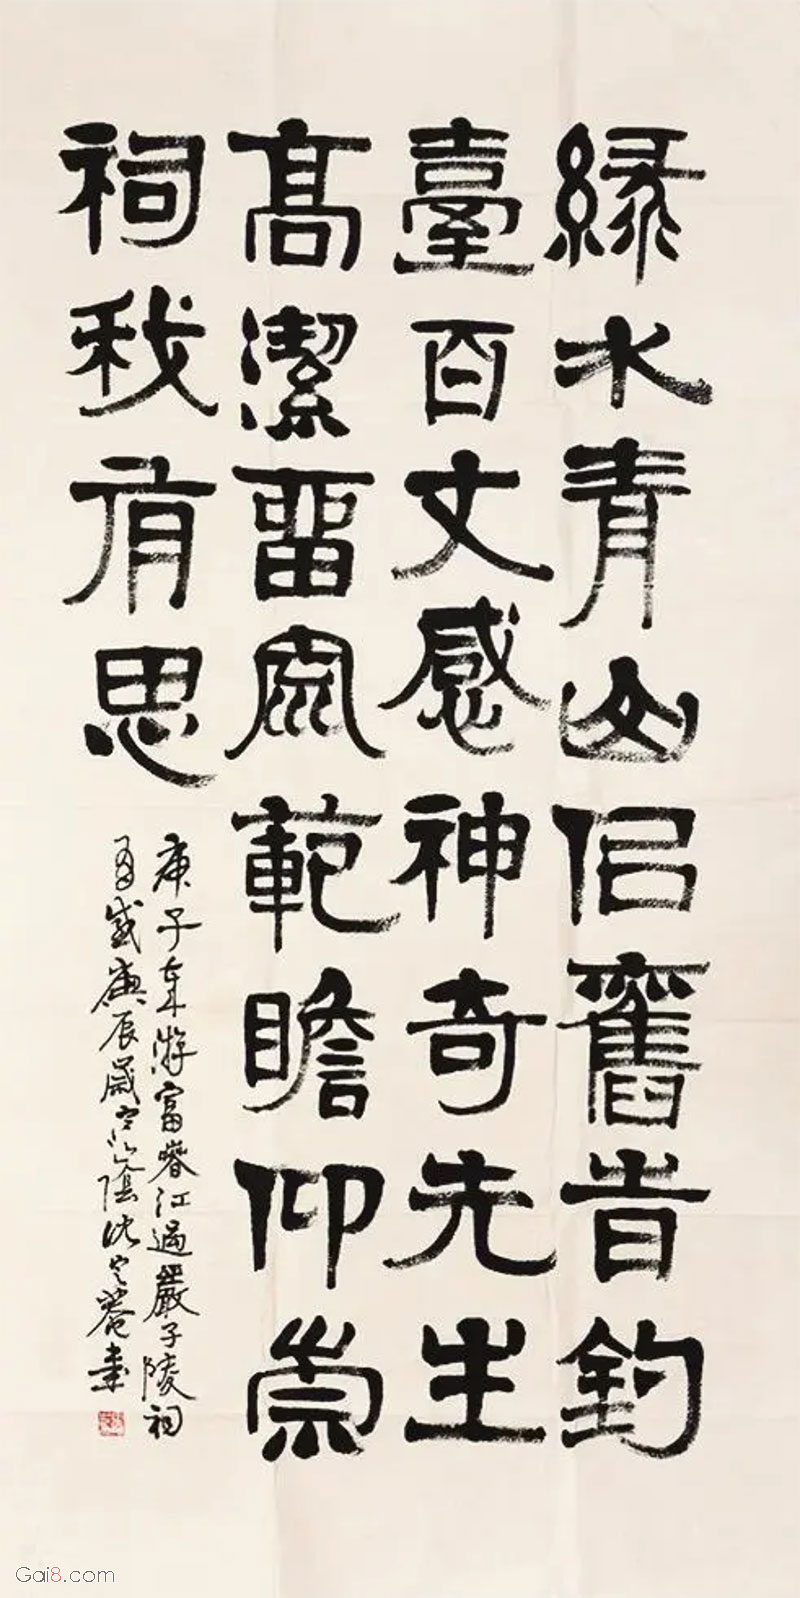 緑水青山侣舊昔釣
臺百丈感神奇先生
高潔留宾範瞻仰崇
祠我有思
庚子年游富春江過嚴子陵祠
有感庚辰歲
山陰沈定菴書
Gai8.com